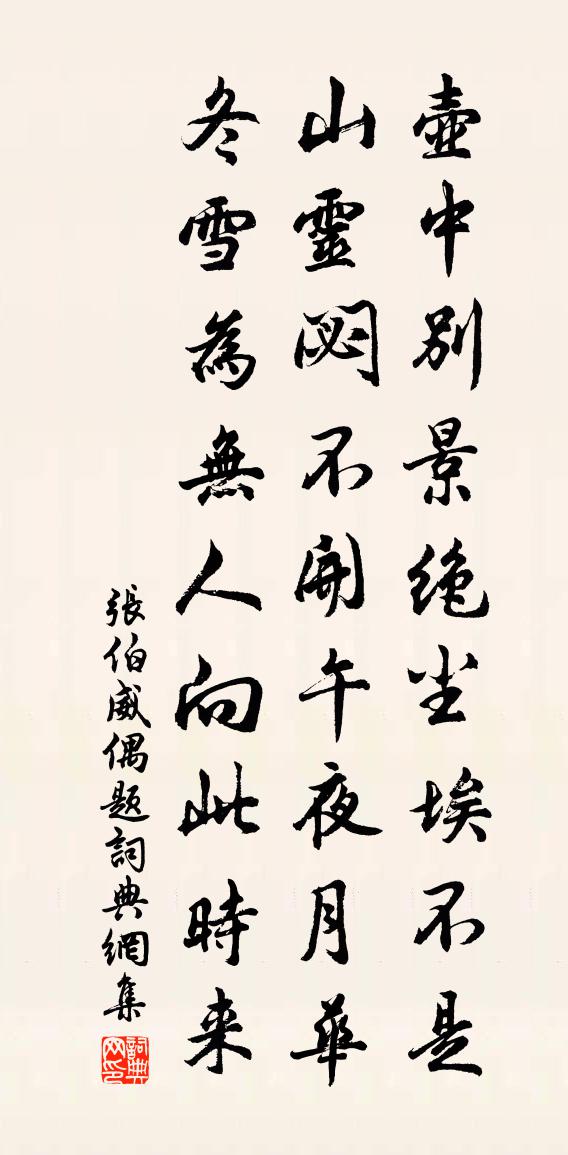 壺中別景绝尘埃不是
山靈閟不開午夜月華
冬雪為無人向此時来
張伯威偶题詞典網集
詞典网印